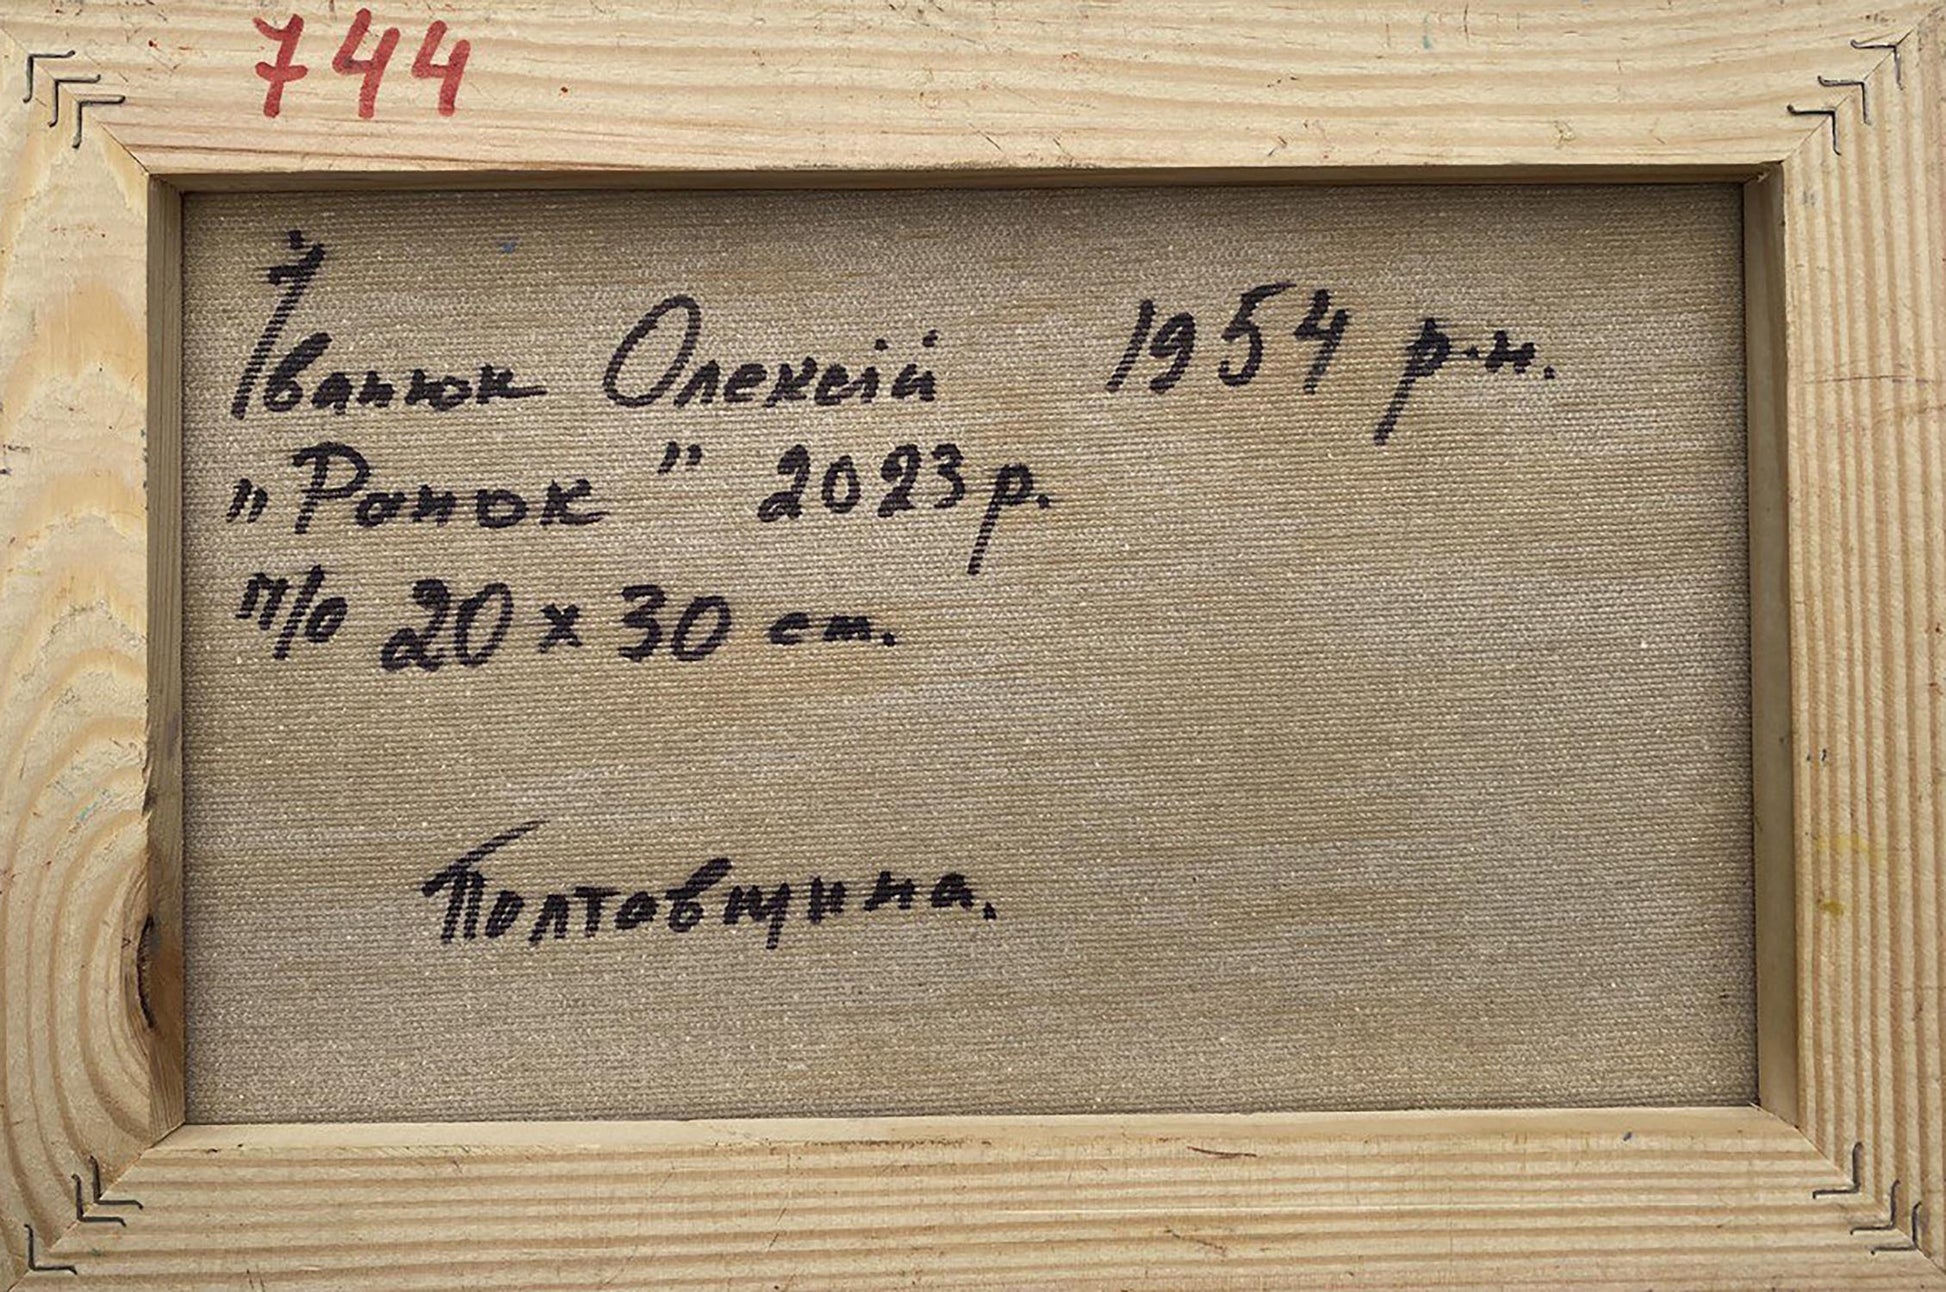 744
Іванюк Олексій 1954 р.н.
„Ранок" 2023 р.
п/о 20 x 30 см.
Полтавщина.